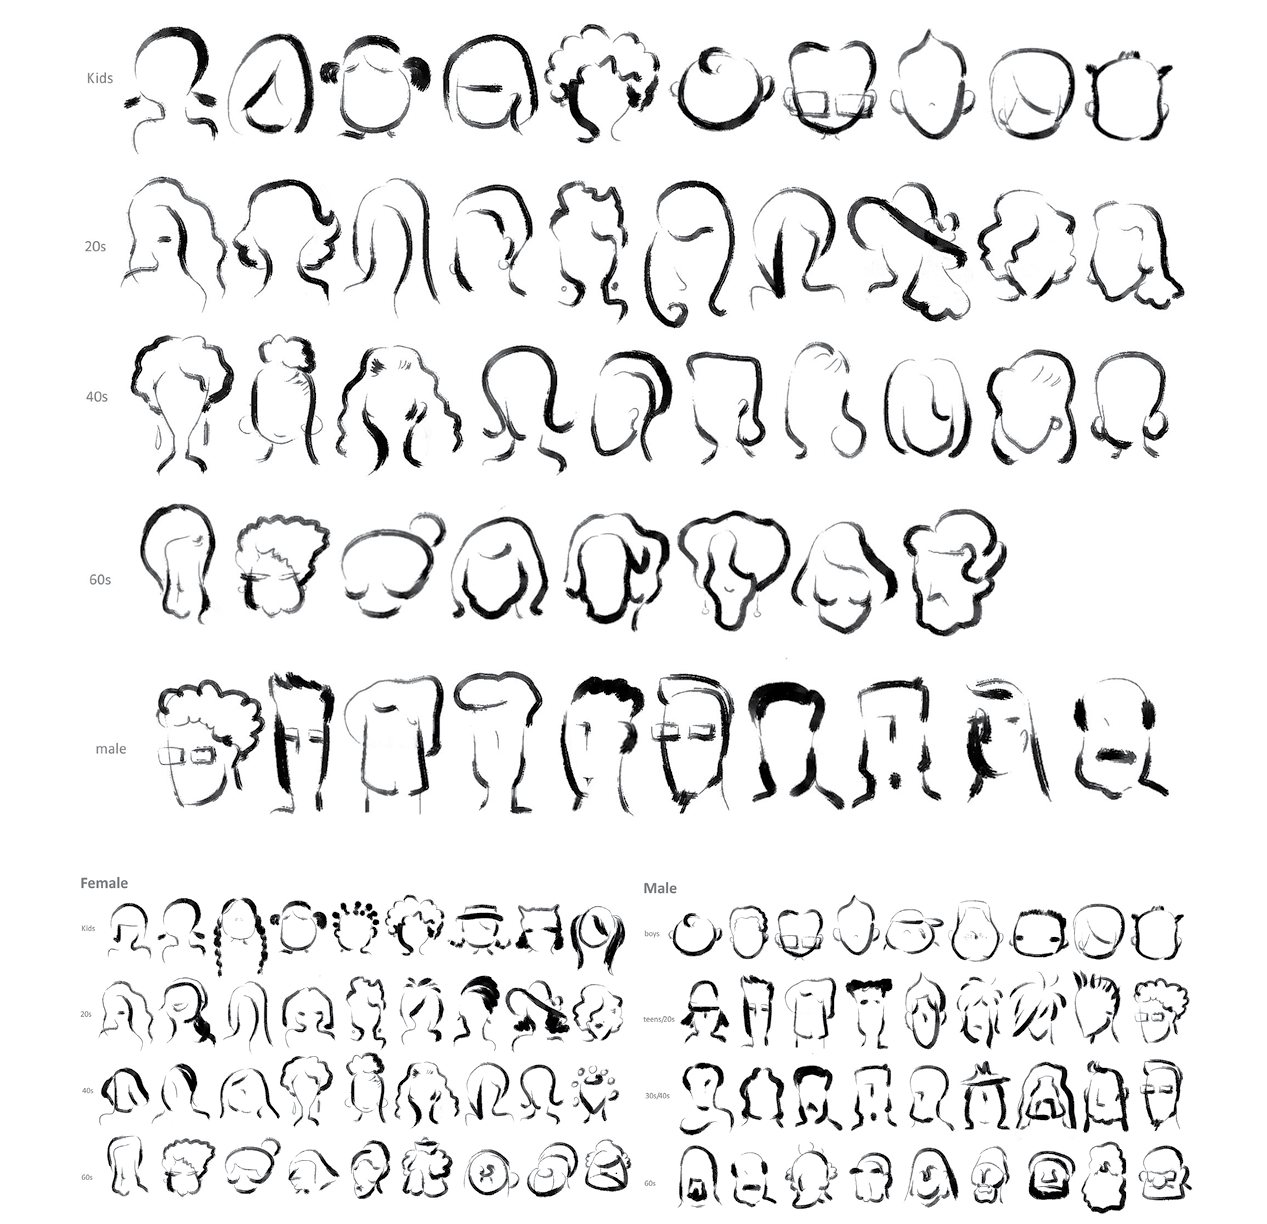 Kids
20s
40s
60s
male
Female
Kids
20s
40s
60s
Male
boys
teens/20s
30s/40s
60s